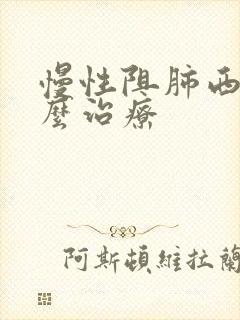 慢性阻肺西
麼治療
阿斯頓維拉蘭